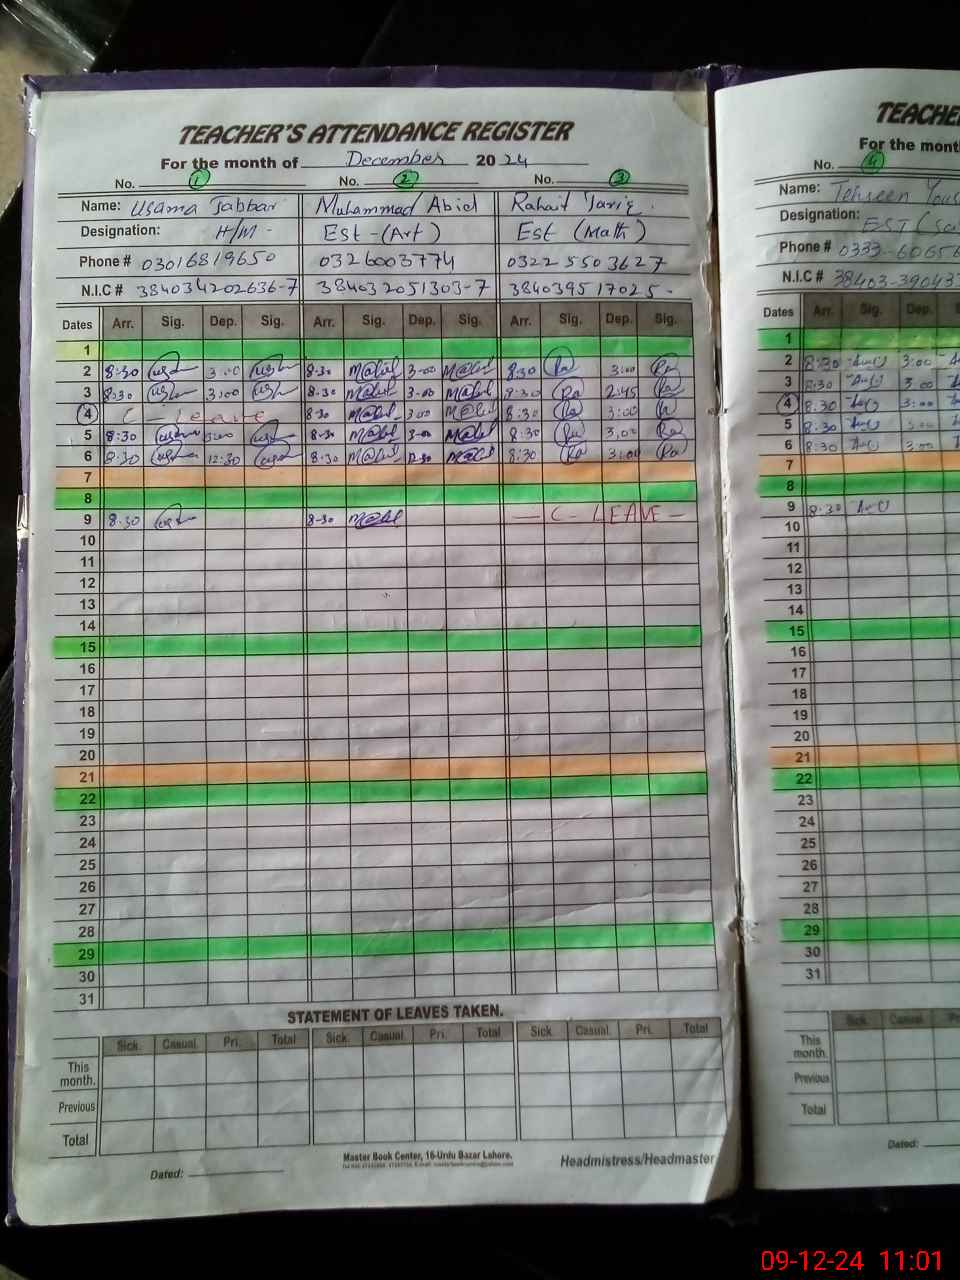 TEACHER'S ATTENDANCE REGISTER
For the month of December 2024
No. 1 No. 2 No. 3
Name: Usama Jabbar Muhammad Abid Rahait Tariq.
Designation: H/M - Est -(Art) Est (Math)
Phone # 03016819650 0326003774 0322 5503627
N.I.C # 384034202636-7 384032051303-7 384039517025-
Dates Arr. Sig. Dep. Sig. Arr. Sig. Dep. Sig. Arr. Sig. Dep. Sig.
1
2 8:30 3:00 8-30 M@bid 3-00 M@bid 8:30 Ra 3:00 Ra
3 8:30 3:00 8-30 M@bid 3-00 M@bid 8:30 Ra 2:45 Ra
4 C - Leave 8-30 M@bid 3:00 M@bid 8:30 Ra 3:00 Ra
5 8:30 3:00 8-30 M@bid 3-00 M@bid 8:30 Ra 3:00 Ra
6 8:30 12:30 8-30 M@bid 12-30 M@bid 8:30 Ra 3:00 Ra
7
8
9 8-30 8-30 M@bid — C - LEAVE -
10
11
12
13
14
15
16
17
18
19
20
21
22
23
24
25
26
27
28
29
30
31
STATEMENT OF LEAVES TAKEN.
Sick. Casual. Pri. Total Sick. Casual Pri. Total Sick. Casual. Pri. Total
This month.
Previous
Total
Master Book Center, 16-Urdu Bazar Lahore.
Dated: Headmistress/Headmaster
TEACHE
For the mont
No. 4
Name: Tehreen Yous
Designation: EST (Sc
Phone # 0333-60656
N.I.C # 38403-390433
Dates Arr. Sig. Dep.
1
2 8:30 3:00
3 8:30 3:00
4 8:30 3:00
5 8:30 3:00
6 8:30 3:00
7
8
9 8:30
10
11
12
13
14
15
16
17
18
19
20
21
22
23
24
25
26
27
28
29
30
31
Sick. Casual Pr
This month.
Previous
Total
Dated:
09-12-24 11:01